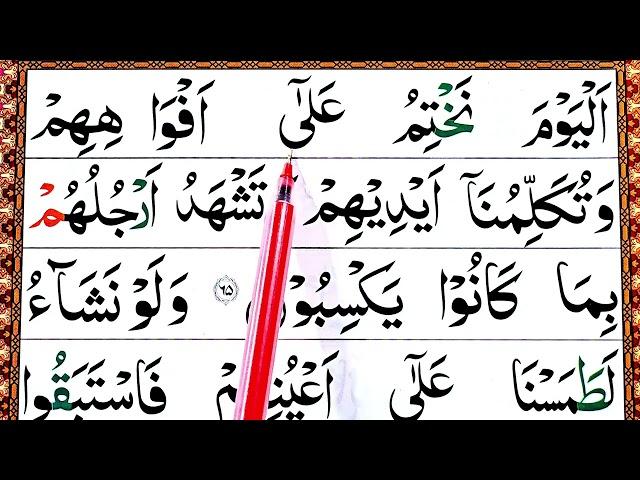 اَلْيَوْمَ نَخْتِمُ عَلٰٓى اَفْوَا هِهِمْ
وَتُكَلِّمُنَاۤ اَيْدِيْهِمْ تَشْهَدُ اَرْجُلُهُمْ
بِمَا كَانُوْا يَكْسِبُوْنَ ۶۵ وَلَوْ نَشَآءُ
لَطَمَسْنَا عَلٰٓى اَعْيُنِهِمْ فَاسْتَبَقُوا